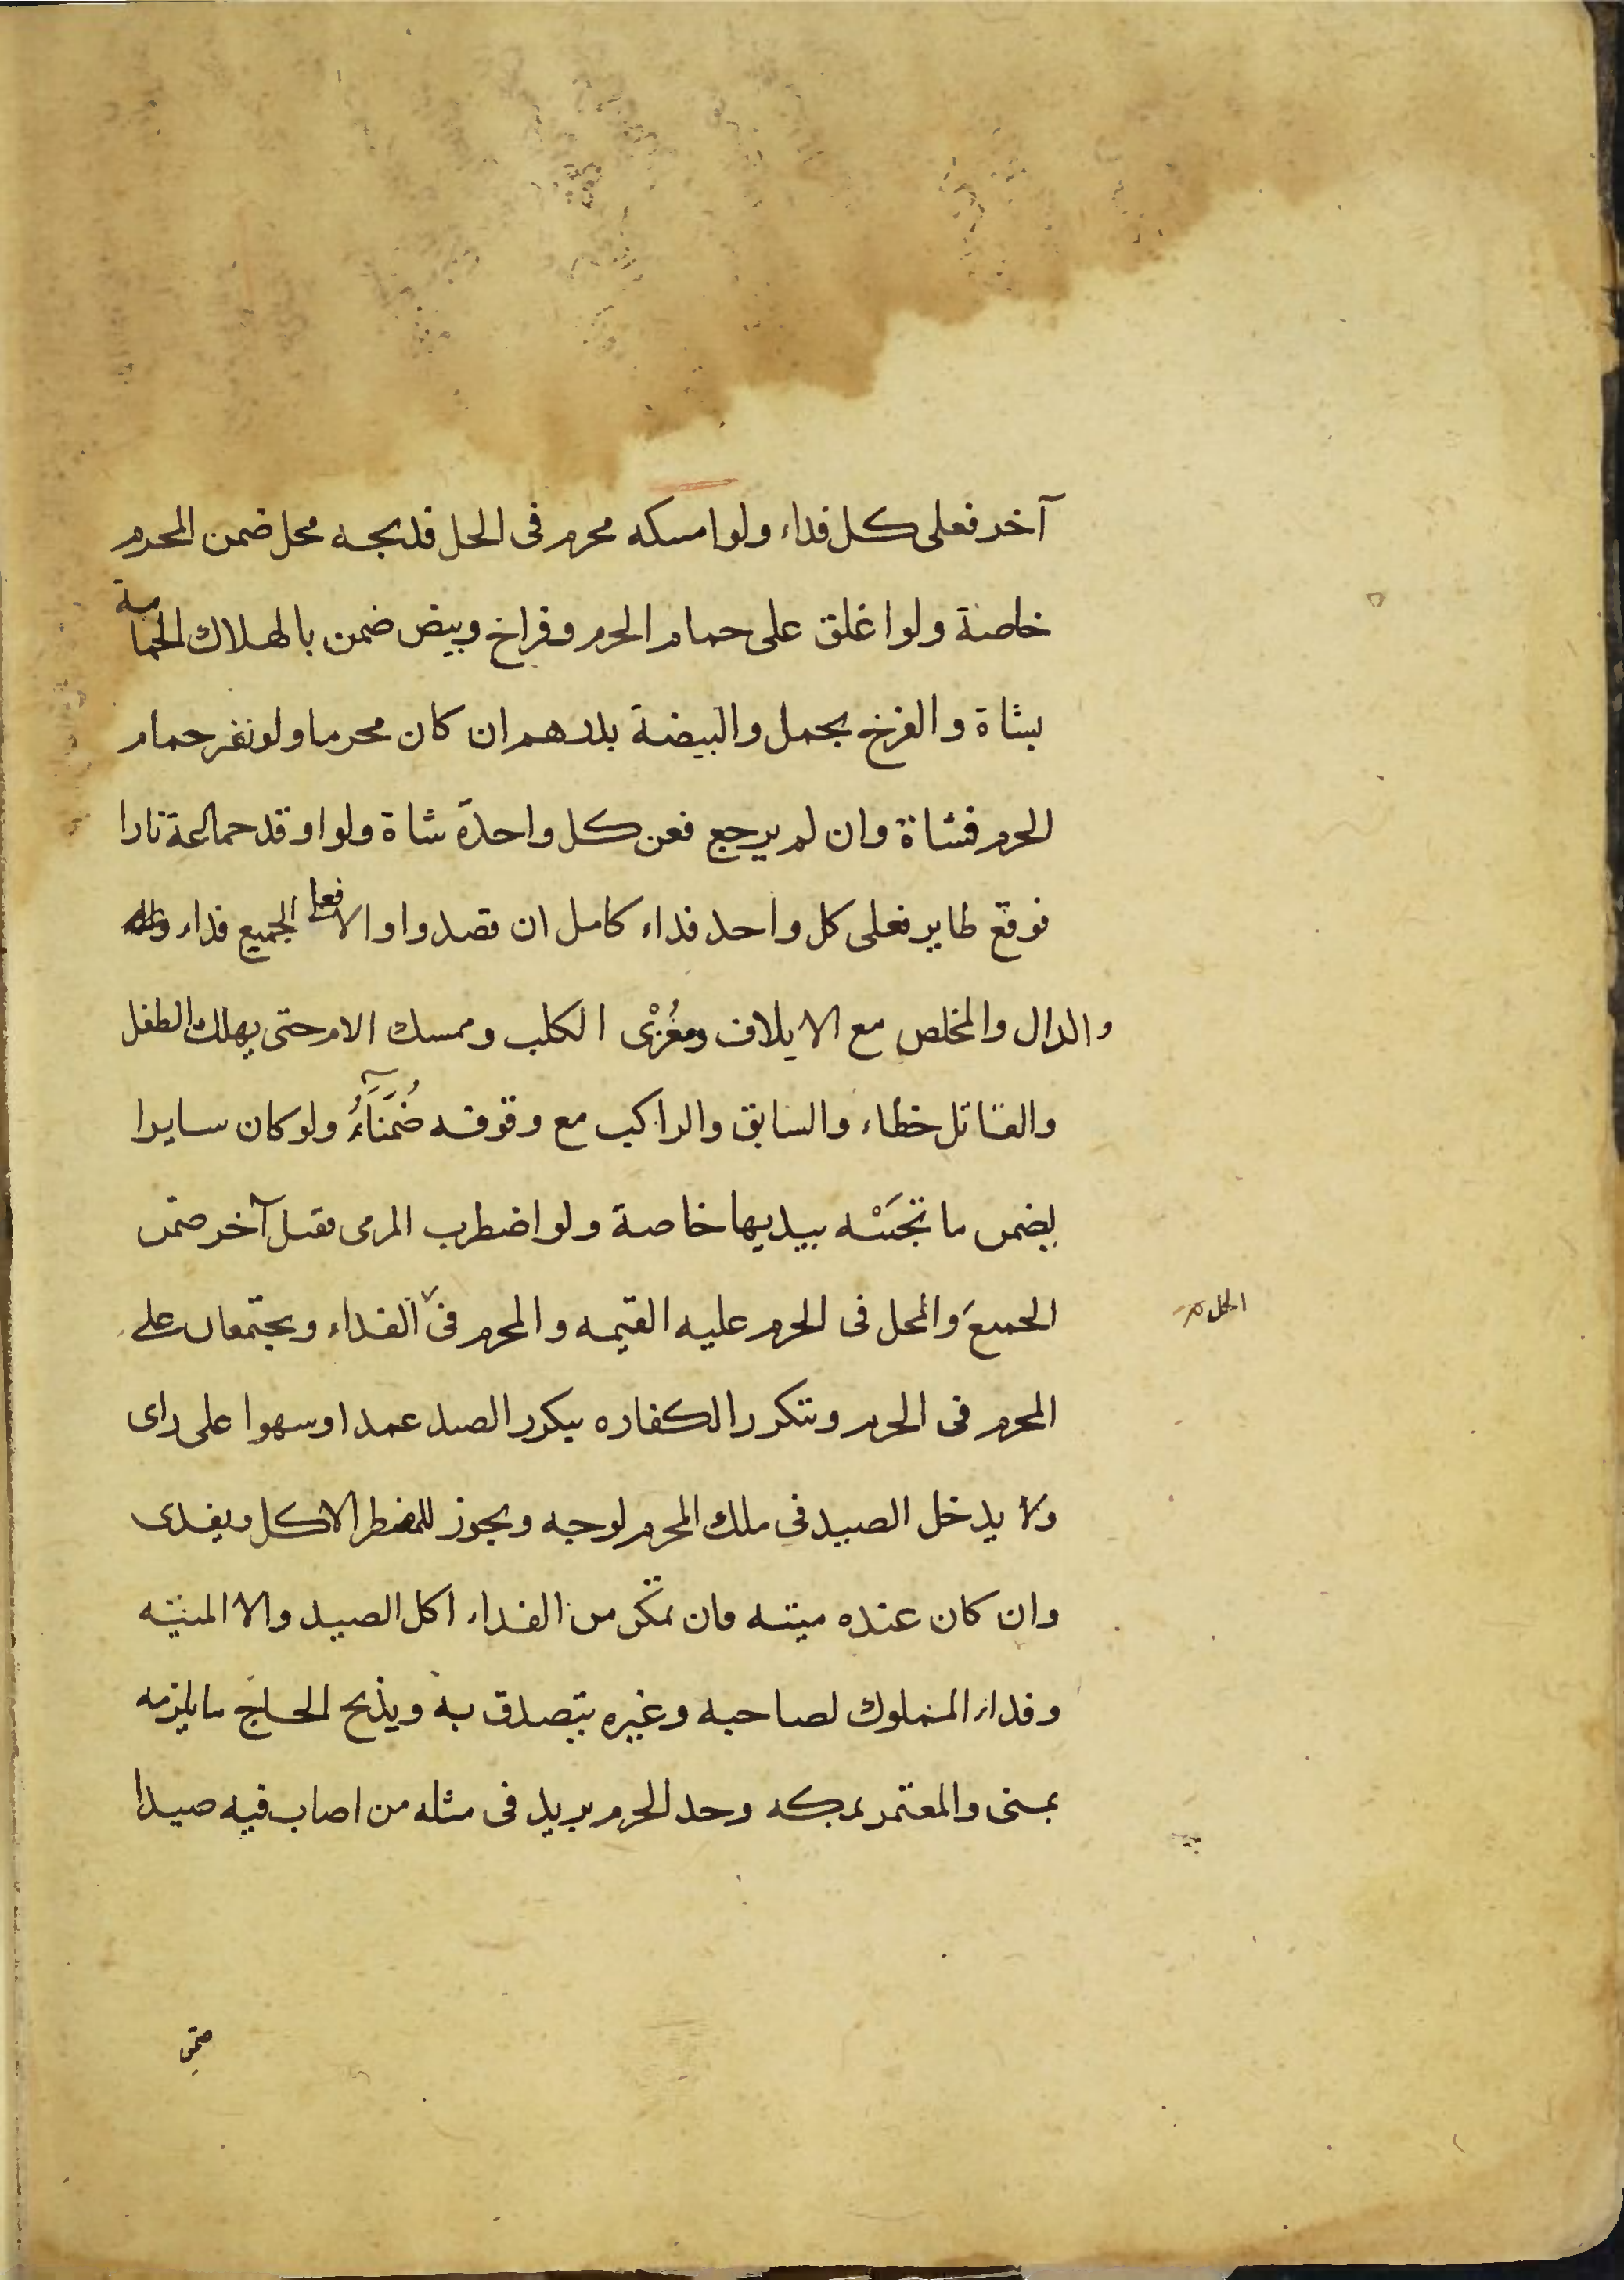 آخر فعلى كل فداء ولو امسكه محرم فى الحل فذبحه محل ضمن المحرم
خاصة ولو اغلق على حمام الحرم وفراخ وبيض ضمن بالهلاك الحمامة
بشاة والفرخ بحمل والبيضة بدرهم ان كان محرما ولو نفر حمام
الحرم فشاة وان لم يرجع فعن كل واحدة شاة ولو اوقد جماعة نارا
فوقع طاير فعلى كل واحد فداء كامل ان قصدوا والا فعلى الجميع فداء
والدال والمخلص مع الايلاف ومغرى الكلب وممسك الام حتى يهلك الطفل
والقاتل خطاء والسابق والراكب مع وقوفه ضُمَنَآءُ ولو كان سايرا
يضمن ما تجنيه بيديها خاصة ولو اضطرب المرمى فقتل آخر ضمن
الجميع والمحل فى الحرم عليه القيمه والمحرم فى الفداء ويجتمعان على
الحل
المحرم فى الحرم وتتكرر الكفاره بتكرر الصيد عمدا وسهوا على راى
ولا يدخل الصيد فى ملك المحرم لوجه ويجوز للمضطر الاكل ويفدى
وان كان عنده ميته فان تمكن من الفداء اكل الصيد والا الميته
وفداء المملوك لصاحبه وغيره يتصدق به ويذبح الحاج ما يلزمه
بمنى والمعتمر بمكه وحد الحرم بريد فى مثله من اصاب فيه صيدا
ضمن